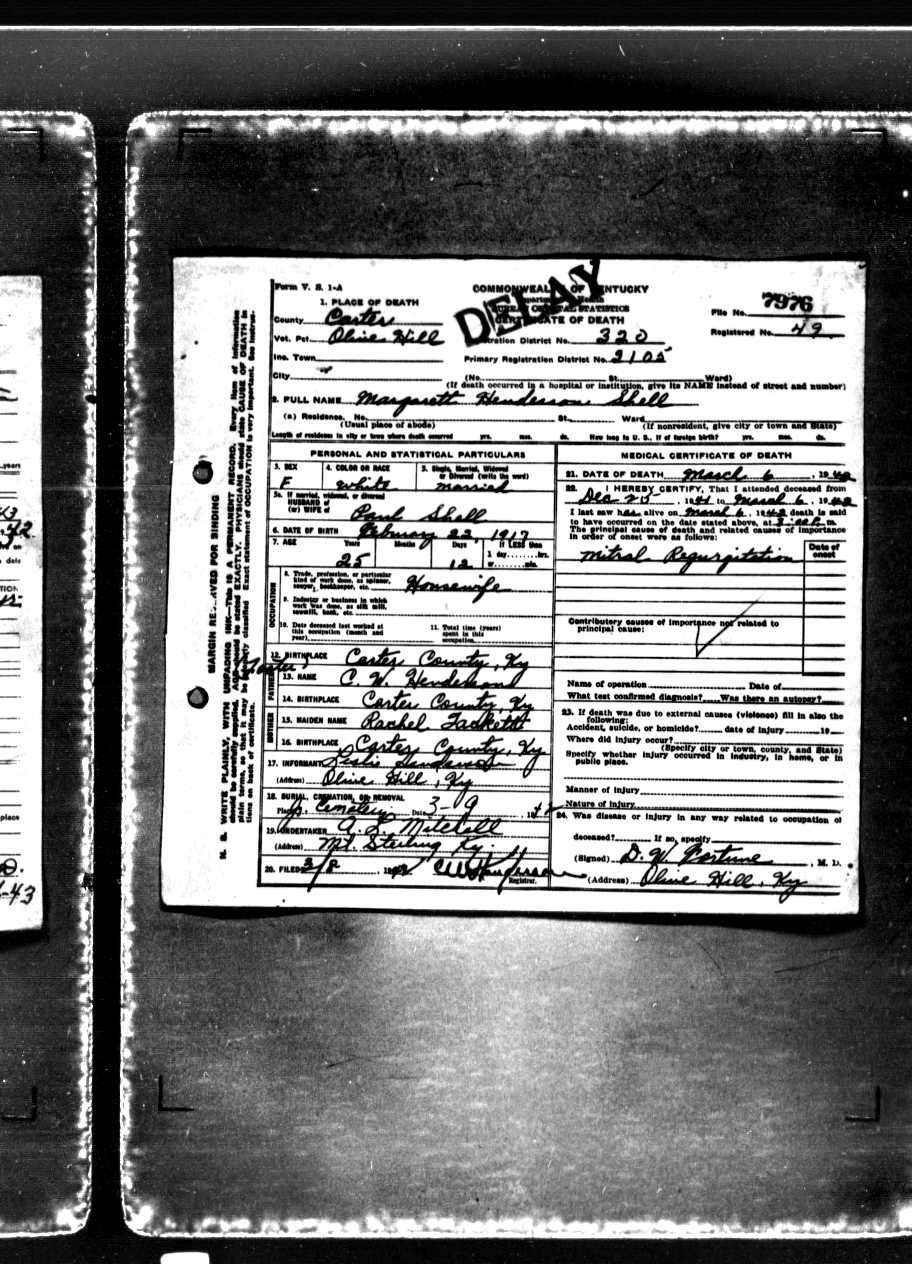 Form V. S. 1-A
COMMONWEALTH OF KENTUCKY
DELAY
BUREAU OF VITAL STATISTICS
CERTIFICATE OF DEATH
File No. 7976
Registered No. 49
1. PLACE OF DEATH
County Carter
Vot. Pct. Olive Hill
Registration District No. 320
Inc. Town
Primary Registration District No. 2105
City
(No. St. Ward)
(If death occurred in a hospital or institution, give its NAME instead of street and number)
2. FULL NAME Margarett Henderson Shell
(a) Residence. No. St. Ward
(Usual place of abode)
(If nonresident, give city or town and State)
Length of residence in city or town where death occurred yrs. mos. ds. How long in U. S., if of foreign birth? yrs. mos. ds.
PERSONAL AND STATISTICAL PARTICULARS
3. SEX
F
4. COLOR OR RACE
White
5. Single, Married, Widowed or Divorced (write the word)
married
5a. If married, widowed, or divorced
HUSBAND of
(or) WIFE of
Paul Shell
6. DATE OF BIRTH February 22, 1917
7. AGE Years Months Days If LESS than
1 day, hrs.
or min.
25 12
OCCUPATION
8. Trade, profession, or particular kind of work done, as spinner, sawyer, bookkeeper, etc.
Housewife
9. Industry or business in which work was done, as silk mill, sawmill, bank, etc.
10. Date deceased last worked at this occupation (month and year)
11. Total time (years) spent in this occupation
12. BIRTHPLACE Carter County, Ky
FATHER
13. NAME C. W. Henderson
14. BIRTHPLACE Carter County, Ky
MOTHER
15. MAIDEN NAME Rachel Tackett
16. BIRTHPLACE Carter County, Ky
17. INFORMANT Leslie Henderson
(Address) Olive Hill, Ky
18. BURIAL, CREMATION, OR REMOVAL
Place Cemetery Date 3-9 1942
19. UNDERTAKER A. L. Mitchell
(Address) Mt. Sterling Ky.
20. FILED 3/8 1942 C W Henderson
Registrar.
MEDICAL CERTIFICATE OF DEATH
21. DATE OF DEATH March 6, 1942
22. I HEREBY CERTIFY, That I attended deceased from
Dec 25, 1941 to March 6, 1942
I last saw her alive on March 6, 1942 death is said
to have occurred on the date stated above, at 3:00 P. m.
The principal cause of death and related causes of importance
in order of onset were as follows:
Date of onset
Mitral Regurgitation
Contributory causes of importance not related to
principal cause:
Name of operation Date of
What test confirmed diagnosis? Was there an autopsy?
23. If death was due to external causes (violence) fill in also the
following:
Accident, suicide, or homicide? date of injury 19
Where did injury occur?
(Specify city or town, county, and State)
Specify whether injury occurred in industry, in home, or in
public place.
Manner of injury
Nature of injury
24. Was disease or injury in any way related to occupation of
deceased? If so, specify
(Signed) D. W. Fortune, M. D.
(Address) Olive Hill, Ky
MARGIN RESERVED FOR BINDING
N. B. WRITE PLAINLY, WITH UNFADING INK—This is a PERMANENT RECORD. Every item of information
should be carefully supplied. AGE should be stated EXACTLY. PHYSICIANS should state CAUSE OF DEATH in
plain terms, so that it may be properly classified. Exact statement of OCCUPATION is very important. See instructions on back of certificate.